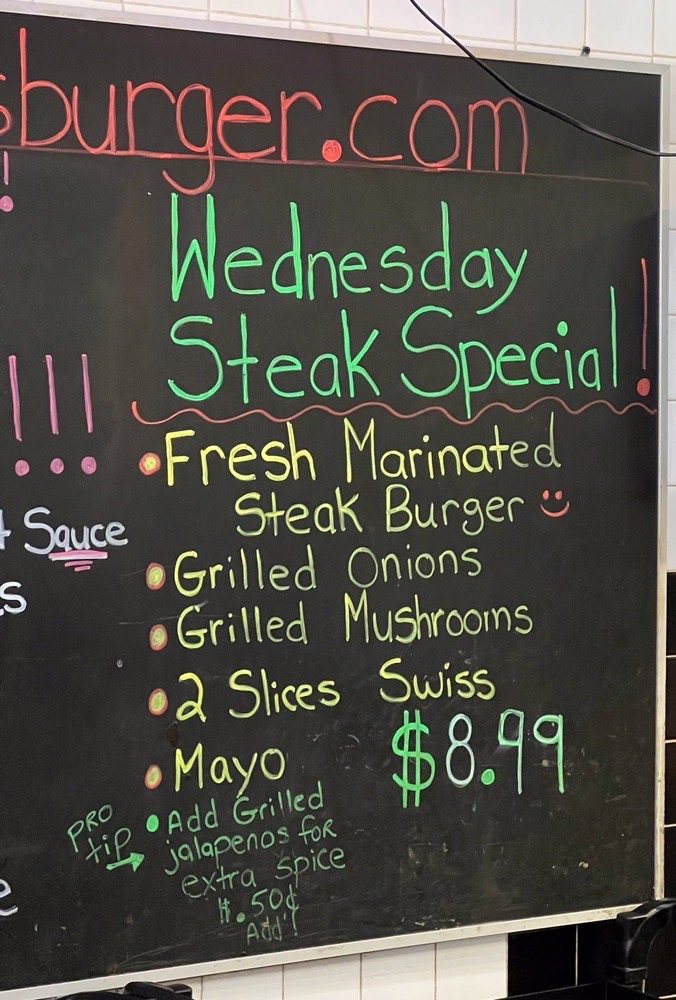 sburger.com
Wednesday
Steak Special!
!!!
Sauce
• Fresh Marinated
Steak Burger
• Grilled Onions
• Grilled Mushrooms
• 2 Slices Swiss
• Mayo
$8.99
PRO
tip →
• Add Grilled
jalapenos for
extra spice
.50¢
Add'!